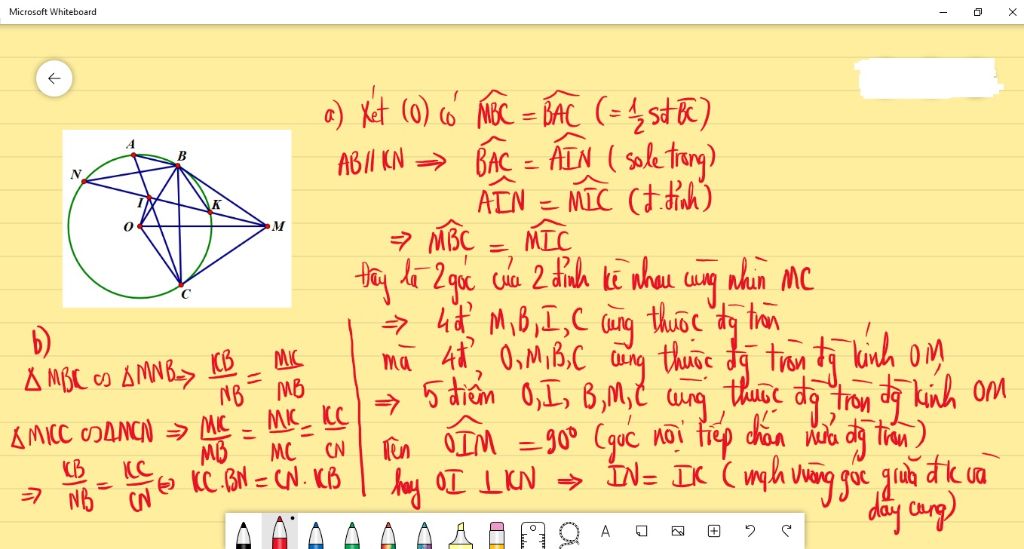 Microsoft Whiteboard
a) Xét (O) có MBC = BAC (= 1/2 sđ BC)
AB // KN ⇒ BAC = AIN (sole trong)
AIN = MIC (đ.đỉnh)
⇒ MBC = MIC
Đây là 2 góc của 2 đỉnh kề nhau cùng nhìn MC
⇒ 4đ' M, B, I, C cùng thuộc đg tròn
mà 4đ' O, M, B, C cùng thuộc đg tròn đg kính OM
⇒ 5 điểm O, I, B, M, C cùng thuộc đg tròn đg kính OM
nên OIM = 90° (góc nội tiếp chắn nửa đg tròn)
hay OI ⊥ KN ⇒ IN = IK (mqh vuông góc giữa đ k và
dây cung)
A
B
N
I
K
O
M
C
b)
Δ MBK ∽ Δ MNB ⇒ KB/NB = MK/MB
Δ MKC ∽ Δ MCN ⇒ MK/MB = MK/MC = KC/CN
⇒ KB/NB = KC/CN ⇔ KC.BN = CN.KB
A